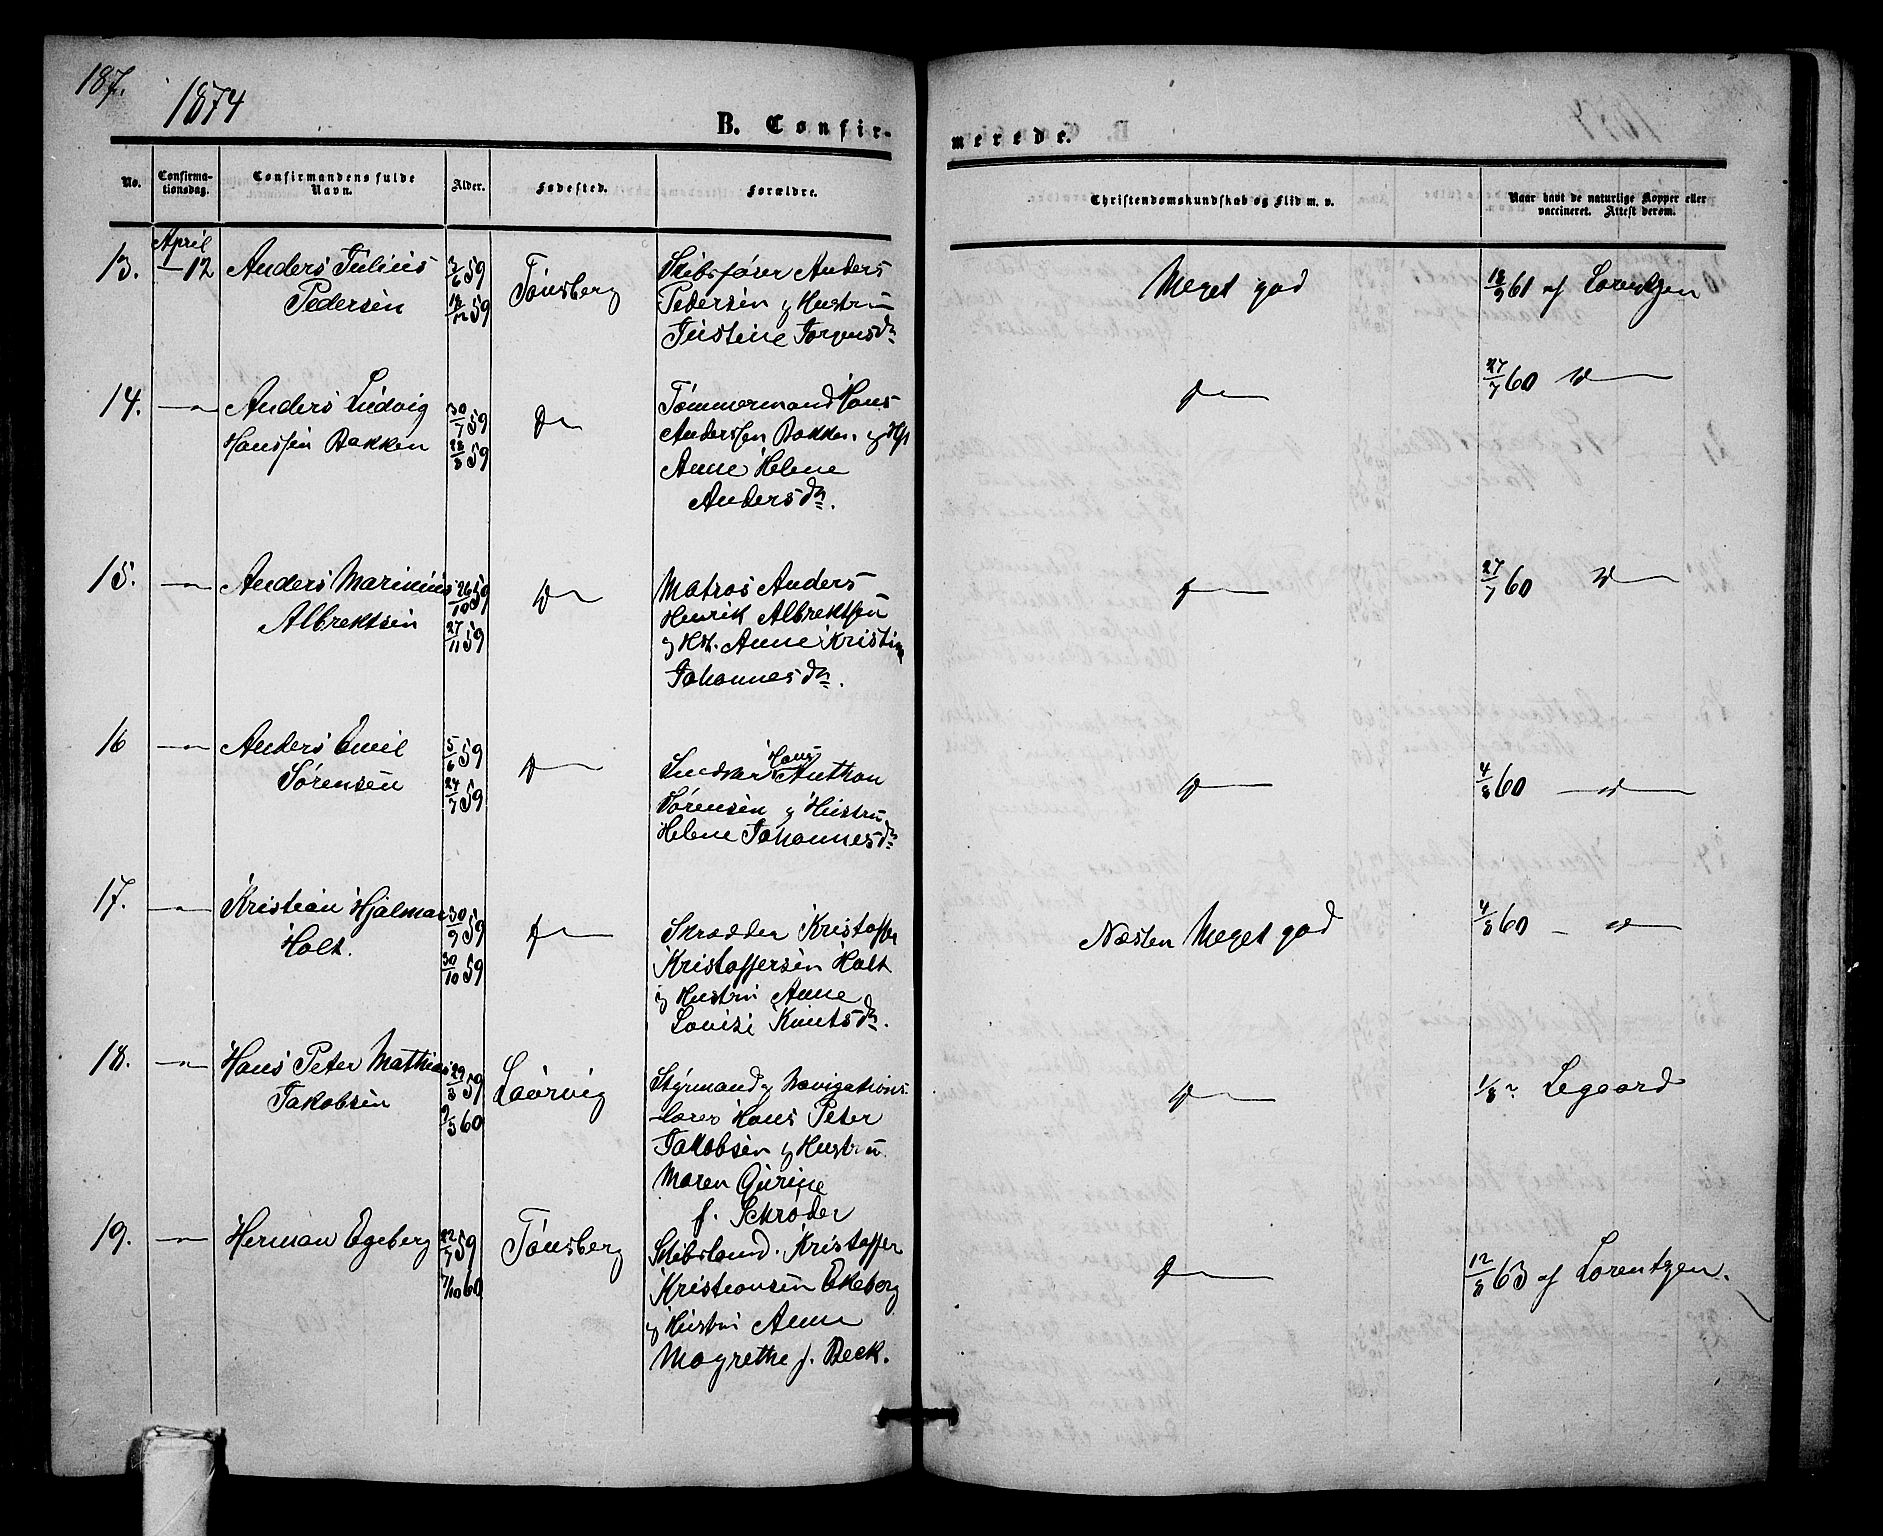 187.
1874
B. Confir-
merede.
No.
Confirma-
tionsdag.
Confirmandens fulde
Navn.
Alder.
Fødested.
Forældre.
Christendomskundskab og Flid m. v.
Naar havt de naturlige Kopper eller
vaccineret. Attest derom.
13.
April
— 12
Anders Julius
Pedersen
3/6 59
18/12 59
Tønsberg
Skibsfører Anders
Pedersen og Hustru
Justine Jørgensdn
Meget god
18/9 61 af Lorentzen
14.
—"—
Anders Ludvig
Hanssen Bakken
30/7 59
28/8 59
Do
Tømmermand Hans
Anderssen Bakken og H
Anne Helene
Andersdn.
Do
27/7 60 Do
15.
—"—
Anders Marinius
Albrektsen
26/10 59
27/11 59
Do
Matros Anders
Henrik Albrektsen
og Hst. Anne Kristine
Johannesdn.
Do
27/7 60 Do
16
—"—
Anders Emil
Sørensen
5/6 59
24/7 59
Do
Snedker Hans Anthon
Sørensen og Hustru
Helene Johannesdn
Do
4/8 60 — Do
17.
—"—
Kristian Hjalmar
Holt.
30/9 59
30/10 59
Do
Skrædder Kristoffer
Kristoffersen Holt
og Hustru Anne
Lovise Knutsdn.
Næsten Meget god
4/8 60 — Do
18.
—"—
Hans Peter Mathias
Jakobsen
29/8 59
9/3 60
Laurvig
Styrmand og Navigations
lærer Hans Peter
Jakobsen og Hustru
Maren Gurine
f. Schrøder
Do
1/8 " Legaard
19.
—"—
Herman Egeberg
22/7 59
7/10 60
Tønsberg
Skibsland. Kristoffer
Kristiansen Ekeberg
og Hustru Anne
Magrethe f. Beck.
Do
12/8 63 af Lorentzen.